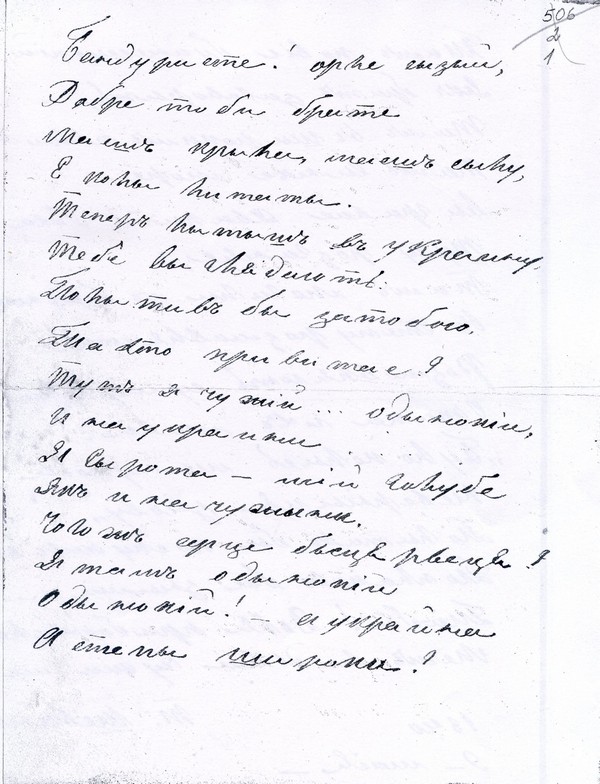 506
2
1
Бандуристе! орле сызый,
Добре тоби брате
Маишъ крыла, маишъ сылу,
Е колы литаты.
Теперъ лытышъ въ украину,
Тебе выглядають.
Полытивъ бы за тобою.
Та хто привитае?
Тутъ я чужій... одынокій,
И на украини
Я сырота – мій голубе
Якъ и на чужыни.
Чогожъ серце бьеця рвеця?
Я тамъ одынокій
Одынокій! – а украйна
А степы широки?